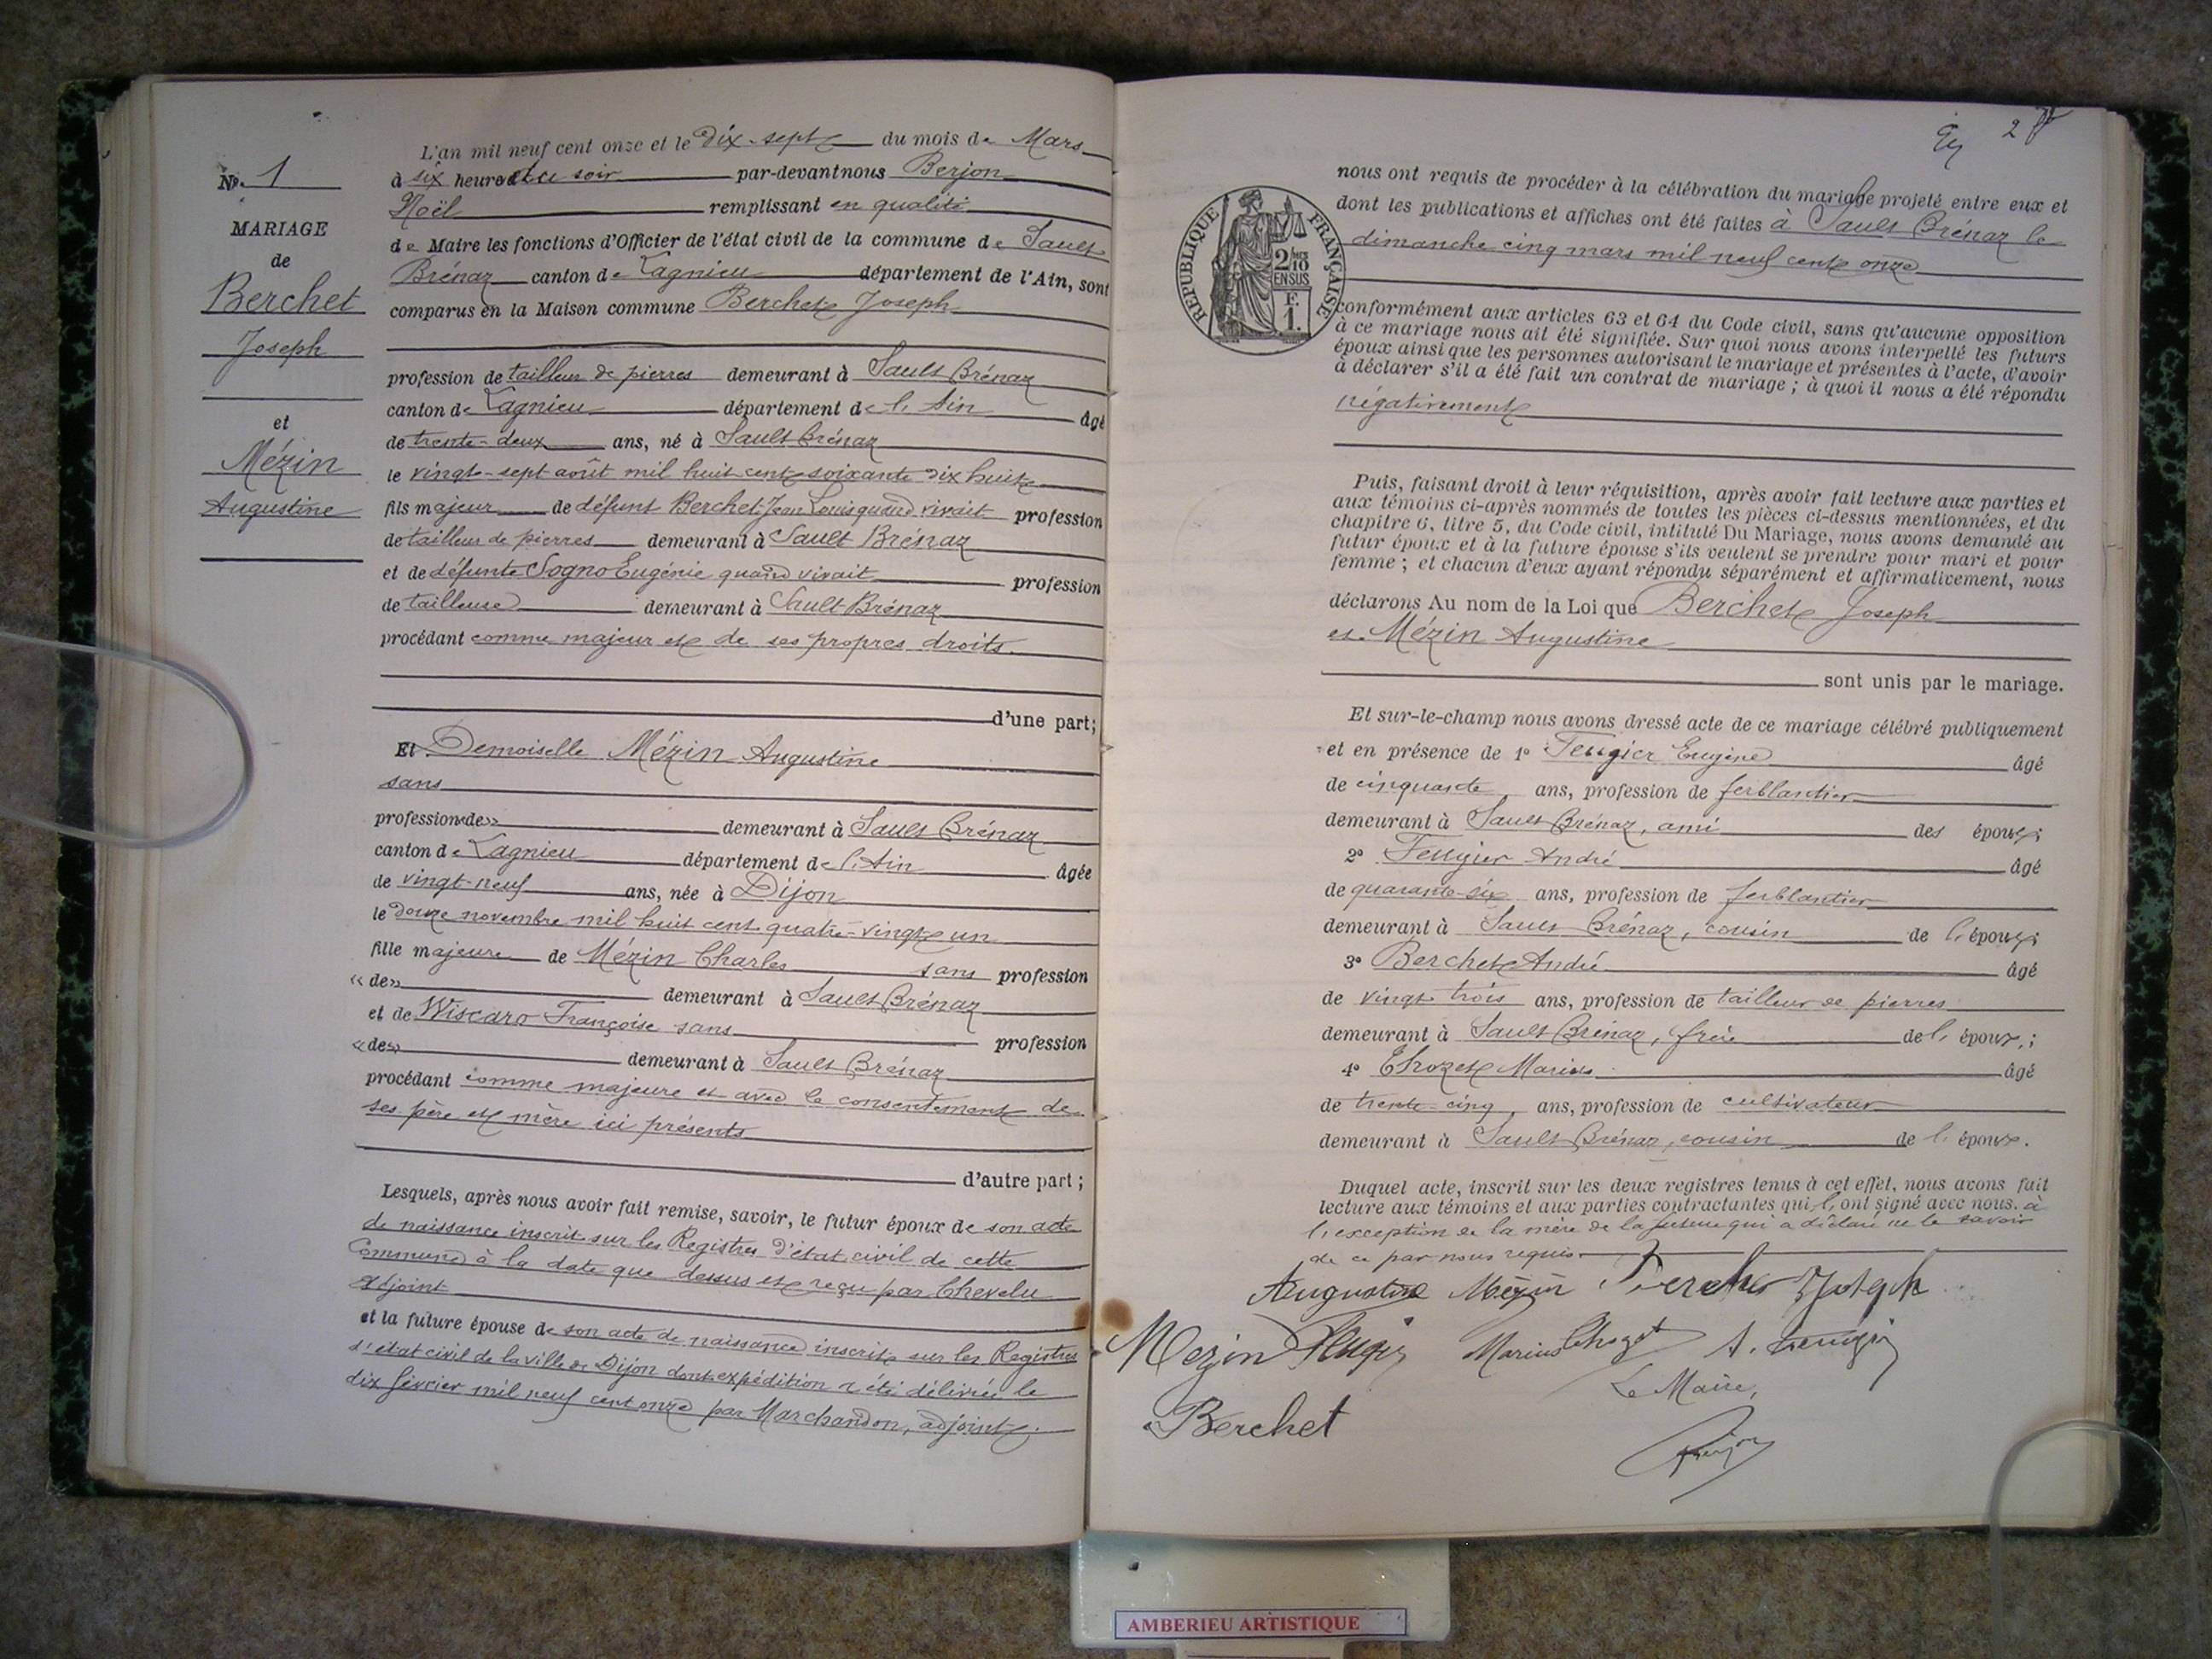 N°. 1
MARIAGE
de
Berchet
Joseph
et
Mézin
Augustine
L'an mil neuf cent onze et le dix-sept du mois de Mars
à six heures du soir par-devant nous Berjon
Noël remplissant en qualité
de Maire les fonctions d'Officier de l'état civil de la commune de Sault
Brénaz canton de Lagnieu département de l'Ain, sont
comparus en la Maison commune Berchet Joseph
profession de tailleur de pierres demeurant à Sault Brénaz
canton de Lagnieu département de l'Ain âgé
de trente-deux ans, né à Sault Brénaz
le vingt-sept août mil huit cent soixante dix huit
fils majeur de défunt Berchet Jean Louis quand vivait profession
de tailleur de pierres demeurant à Sault Brénaz
et de défunte Sogno Eugénie quand vivait profession
de tailleuse demeurant à Sault Brénaz
procédant comme majeur et de ses propres droits
d'une part;
Et Demoiselle Mézin Augustine
sans
profession «de» demeurant à Sault Brénaz
canton de Lagnieu département de l'Ain âgée
de vingt-neuf ans, née à Dijon
le douze novembre mil huit cent quatre-vingt un
fille majeure de Mézin Charles sans profession
«de» demeurant à Sault Brénaz
et de Wiscaro Françoise sans profession
«de» demeurant à Sault Brénaz
procédant comme majeure et avec le consentement de
ses père et mère ici présents
d'autre part;
Lesquels, après nous avoir fait remise, savoir, le futur époux de son acte
de naissance inscrit sur les Registres d'état civil de cette
Commune à la date que dessus et reçu par Chevelu
adjoint
et la future épouse de son acte de naissance inscrit sur les Registres
d'état civil de la ville de Dijon dont expédition a été délivrée le
dix février mil neuf cent onze par Marchandon, adjoint.
2
nous ont requis de procéder à la célébration du mariage projeté entre eux et
dont les publications et affiches ont été faites à Sault Brénaz le
dimanche cinq mars mil neuf cent onze
REPUBLIQUE FRANÇAISE
2/10 EN SUS
F. 1.
conformément aux articles 63 et 64 du Code civil, sans qu'aucune opposition
à ce mariage nous ait été signifiée. Sur quoi nous avons interpellé les futurs
époux ainsi que les personnes autorisant le mariage et présentes à l'acte, d'avoir
à déclarer s'il a été fait un contrat de mariage; à quoi il nous a été répondu
négativement
Puis, faisant droit à leur réquisition, après avoir fait lecture aux parties et
aux témoins ci-après nommés de toutes les pièces ci-dessus mentionnées, et du
chapitre 6, titre 5, du Code civil, intitulé Du Mariage, nous avons demandé au
futur époux et à la future épouse s'ils veulent se prendre pour mari et pour
femme; et chacun d'eux ayant répondu séparément et affirmativement, nous
déclarons Au nom de la Loi que Berchet Joseph
et Mézin Augustine
sont unis par le mariage.
Et sur-le-champ nous avons dressé acte de ce mariage célébré publiquement
et en présence de 1° Feugier Eugène âgé
de cinquante ans, profession de ferblantier
demeurant à Sault Brénaz, ami des époux;
2° Feugier André âgé
de quarante-six ans, profession de ferblantier
demeurant à Sault Brénaz, cousin de l'époux;
3° Berchet André âgé
de vingt trois ans, profession de tailleur de pierres
demeurant à Sault Brénaz, frère de l'époux;
4° Chozet Marius âgé
de trente-cinq ans, profession de cultivateur
demeurant à Sault Brénaz, cousin de l'époux.
Duquel acte, inscrit sur les deux registres tenus à cet effet, nous avons fait
lecture aux témoins et aux parties contractantes qui l'ont signé avec nous. à
l'exception de la mère de la future qui a déclaré ne le savoir
de ce par nous requis
Augustine Mézin Berchet Joseph
Mezin Feugier Marius Chozet A. Feugier
Le Maire,
Berchet
Berjon
AMBERIEU ARTISTIQUE